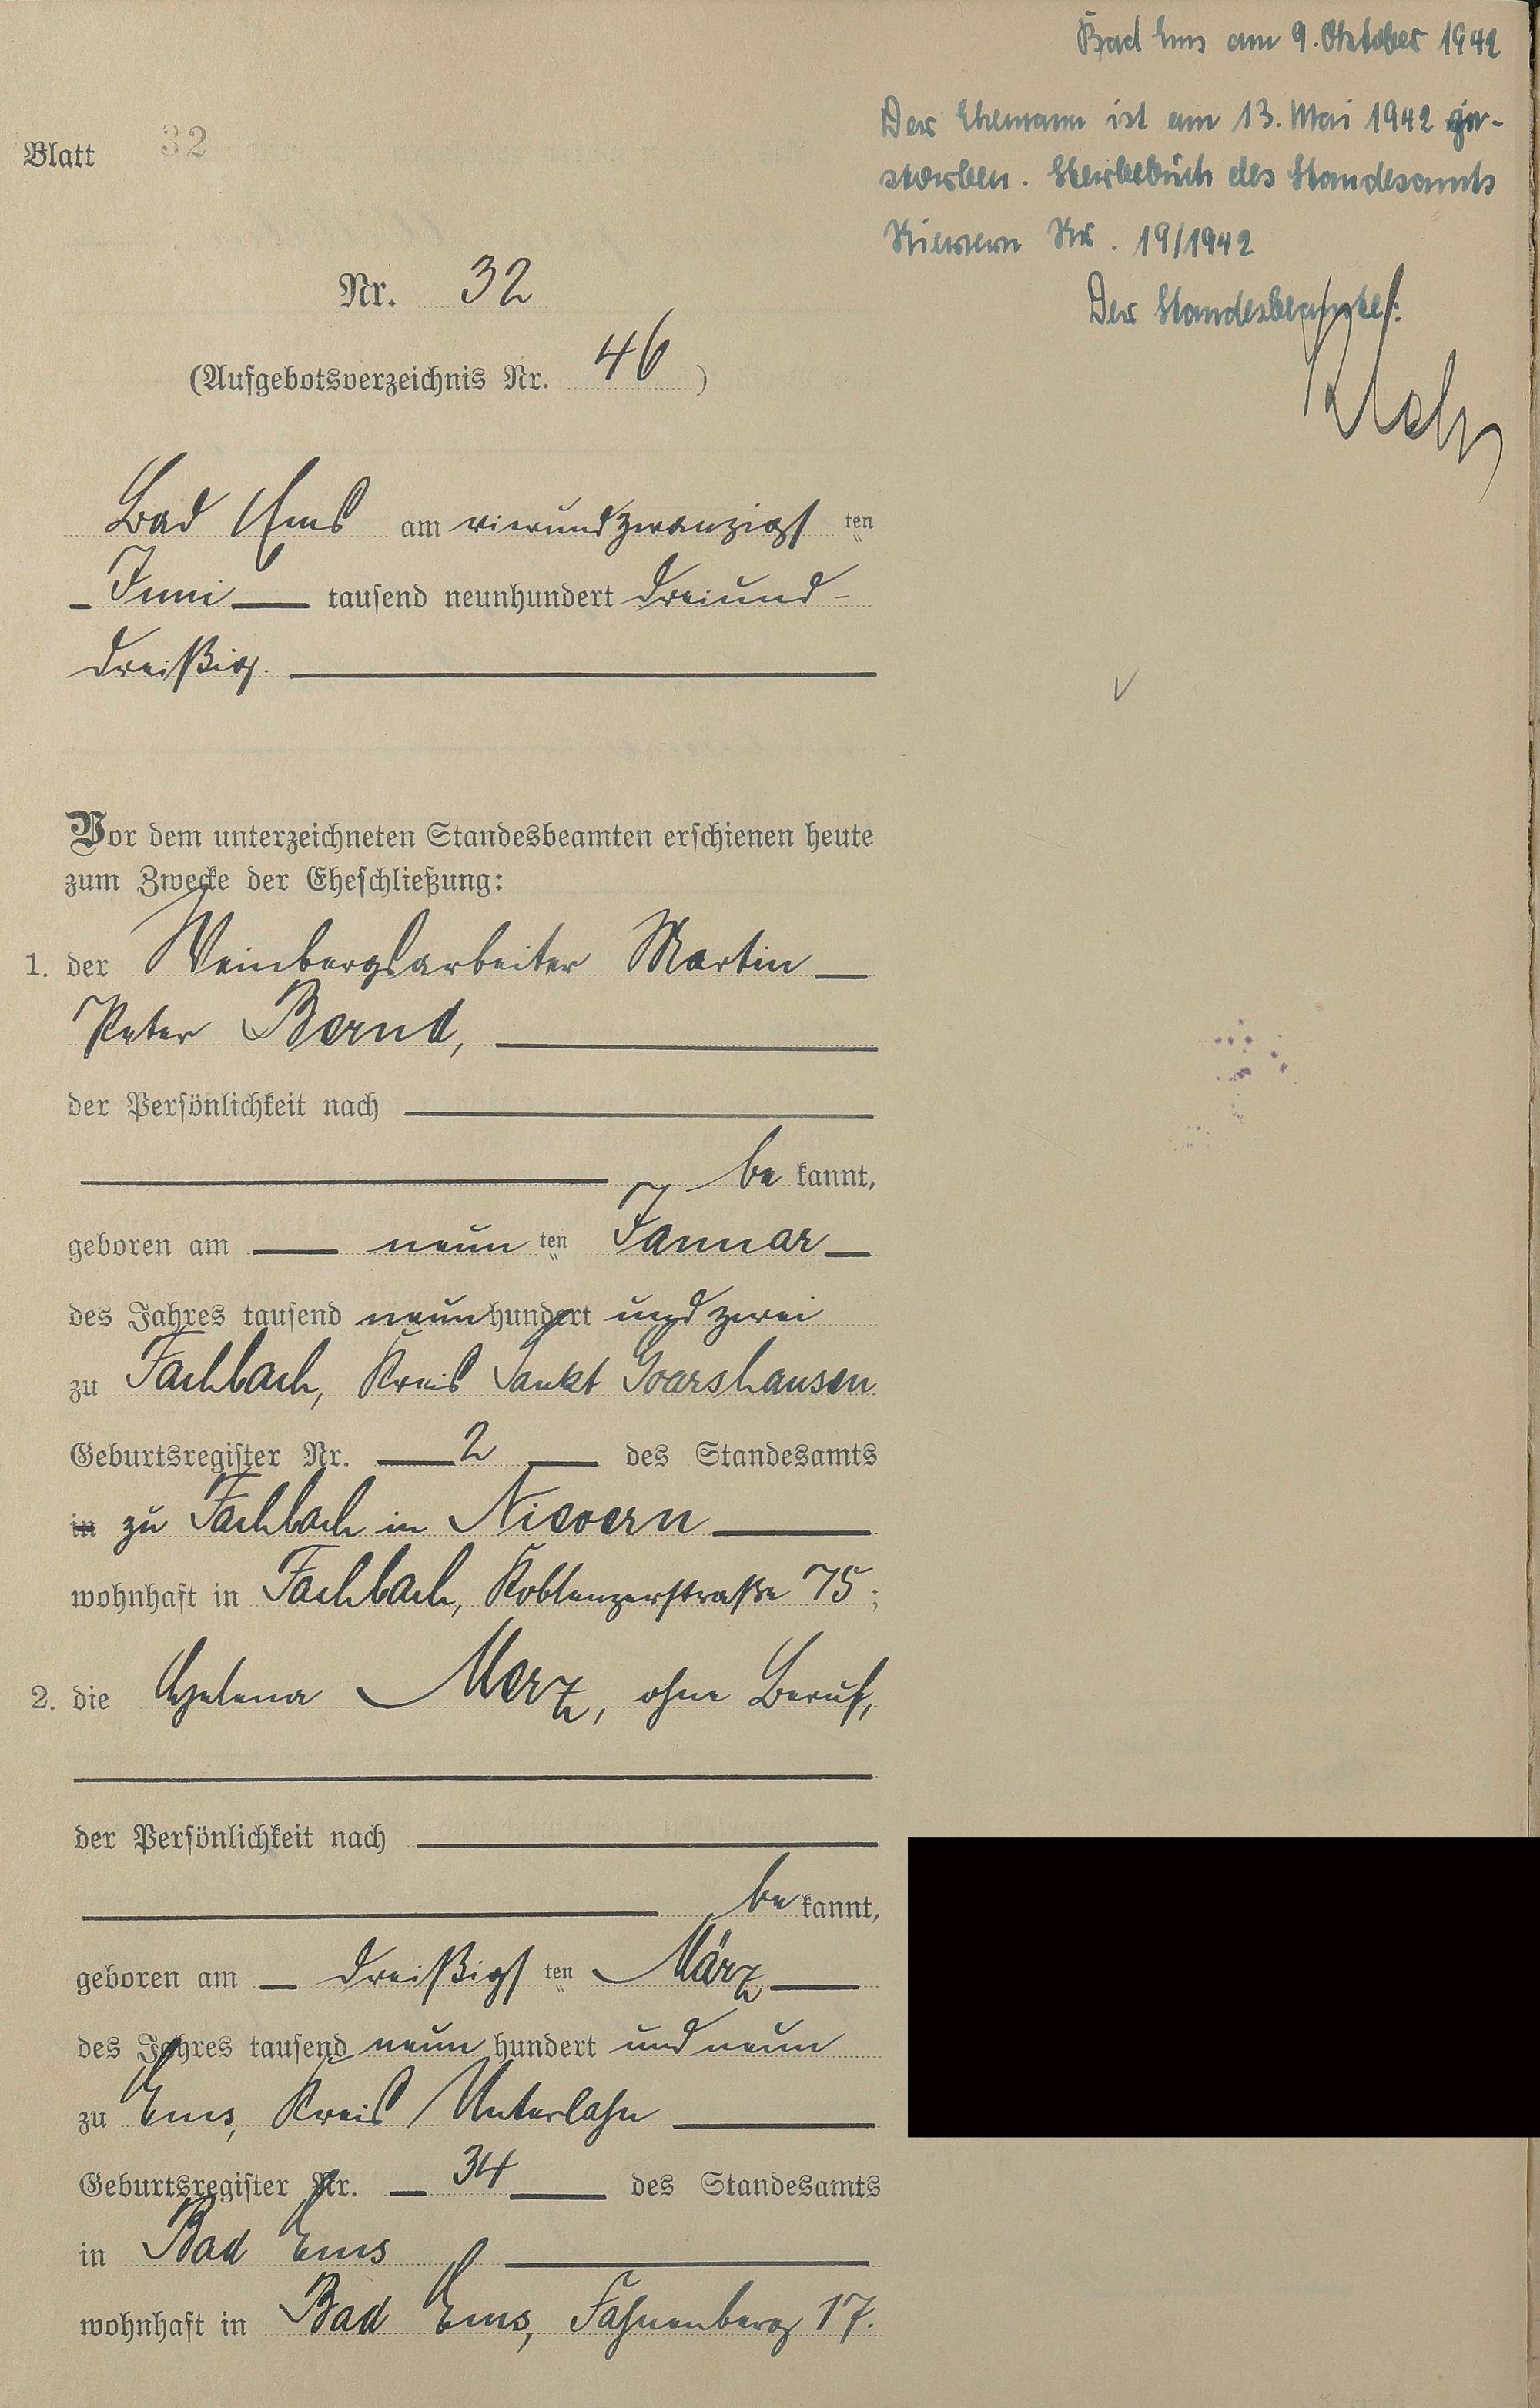 Bad Ems am 9. Oktober 1942
Der Ehemann ist am 13. Mai 1942 ge-
storben. Sterbebuch des Standesamts
Nievern Nr. 19/1942
Der Standesbeamte:
Blatt 32
Nr. 32
(Aufgebotsverzeichnis Nr. 46)
Bad Ems am vierundzwanzigsten
Juni tausend neunhundert dreiund-
dreißig.
Vor dem unterzeichneten Standesbeamten erschienen heute
zum Zwecke der Eheschließung:
1. der Weinbergsarbeiter Martin
Peter Bernd,
der Persönlichkeit nach
be kannt,
geboren am neun ten Januar
des Jahres tausend neunhundert und zwei
zu Fachbach, Kreis Sankt Goarshausen
Geburtsregister Nr. 2 des Standesamts
in zu Fachbach in Nievern
wohnhaft in Fachbach, Koblenzerstraße 75;
2. die Helena Merz, ohne Beruf,
der Persönlichkeit nach
be kannt,
geboren am dreißigsten März
des Jahres tausend neun hundert und neun
zu Ems, Kreis Unterlahn
Geburtsregister Nr. 34 des Standesamts
in Bad Ems
wohnhaft in Bad Ems, Fahnenberg 17.